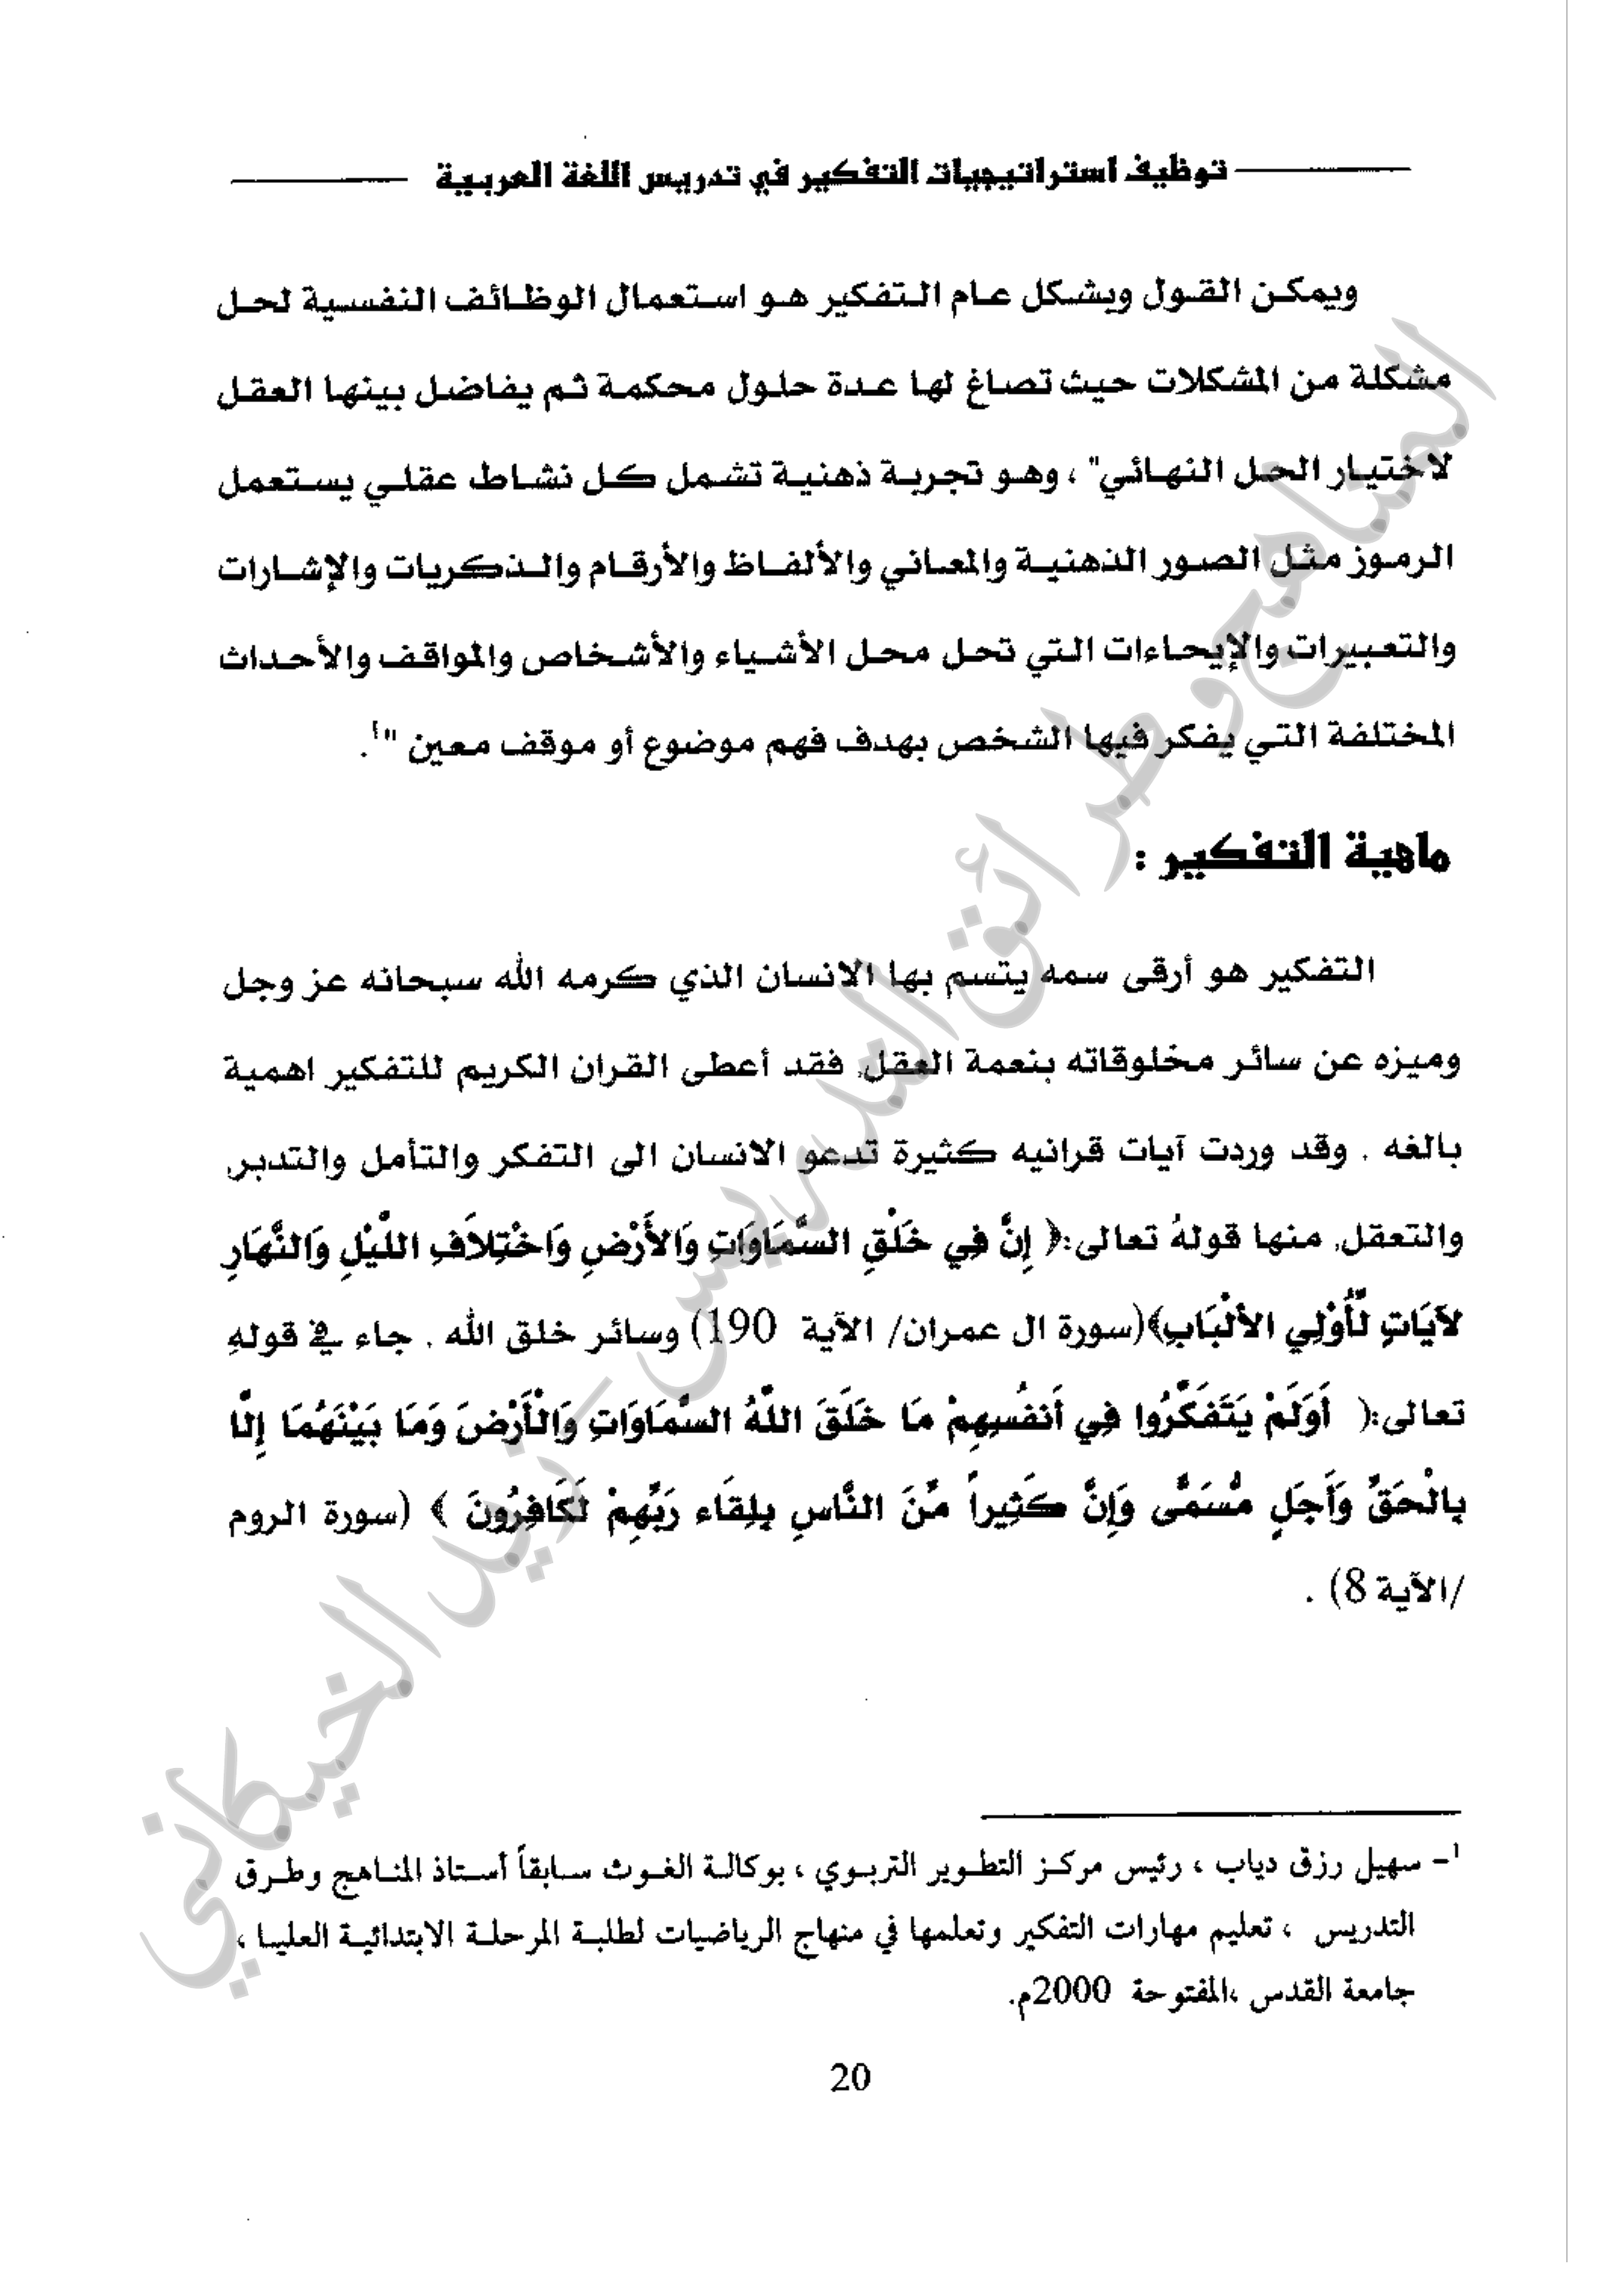 توظيف استراتيجيات التفكير في تدريس اللغة العربية
ويمكن القول وبشكل عام التفكير هو استعمال الوظائف النفسية لحل
مشكلة من المشكلات حيث تصاغ لها عدة حلول محكمة ثم يفاضل بينها العقل
لاختيار الحل النهائي" ، وهو تجربة ذهنية تشمل كل نشاط عقلي يستعمل
الرموز مثل الصور الذهنية والمعاني والألفاظ والأرقام والذكريات والإشارات
والتعبيرات والإيحاءات التي تحل محل الأشياء والأشخاص والمواقف والأحداث
المختلفة التي يفكر فيها الشخص بهدف فهم موضوع أو موقف معين "¹.
ماهية التفكير :
التفكير هو أرقى سمه يتسم بها الانسان الذي كرمه الله سبحانه عز وجل
وميزه عن سائر مخلوقاته بنعمة العقل, فقد أعطى القران الكريم للتفكير اهمية
بالغه . وقد وردت آيات قرانيه كثيرة تدعو الانسان الى التفكر والتأمل والتدبر
والتعقل, منها قولهُ تعالى:﴿ إِنَّ فِي خَلْقِ السَّمَاوَاتِ وَالأَرْضِ وَاخْتِلاَفِ اللَّيْلِ وَالنَّهَارِ
لآيَاتٍ لِّأُوْلِي الألْبَابِ﴾(سورة ال عمران/ الآية 190) وسائر خلق الله . جاء في قولهِ
تعالى:﴿ أَوَلَمْ يَتَفَكَّرُوا فِي أَنفُسِهِمْ مَا خَلَقَ اللَّهُ السَّمَاوَاتِ وَالْأَرْضَ وَمَا بَيْنَهُمَا إِلَّا
بِالْحَقِّ وَأَجَلٍ مُّسَمًّى وَإِنَّ كَثِيراً مِّنَ النَّاسِ بِلِقَاء رَبِّهِمْ لَكَافِرُونَ ﴾ (سورة الروم
/الآية 8) .
¹– سهيل رزق دياب ، رئيس مركز التطوير التربوي ، بوكالة الغوث سابقاً أستاذ المناهج وطرق
التدريس ، تعليم مهارات التفكير وتعلمها في منهاج الرياضيات لطلبة المرحلة الابتدائية العليا ،
جامعة القدس ،المفتوحة 2000م.
20
المناهج وطرائق التدريس – زيد الخيكاني